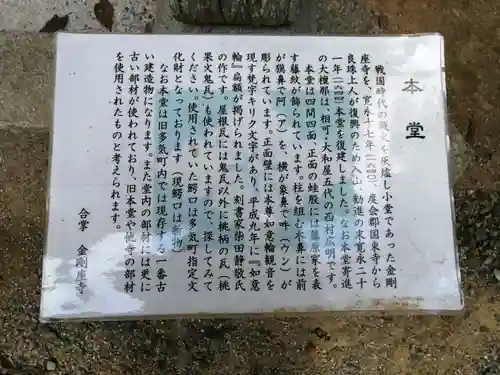 本堂
戦国時代の戦火で灰燼し小堂であった金剛
座寺を、寛永十七年(一六四〇)、度会郡国東寺から
良珠上人が復興のため入山、勧進の末寛永二十
一年(一六四四)本堂を復建しました。なお本堂寄進
の大檀那は、相可・大和屋五代の西村広明です。
本堂は四間四面、正面の蛙股には藤原家を表
す藤紋が飾られています。柱を組む木鼻には前
が獏鼻で阿(ア)を、横が象鼻で吽(ウン)が
彫られています。正面壁には本尊如意輪観音を
現す梵字キリク文字があり、平成九年に『如意
輪』扁額が掲げられました。刻書家柴田静敬氏
の作です。屋根瓦には鬼瓦以外に桃柄の瓦(桃
果文鬼瓦)も使われていますので、探してみて
ください。使用されていた鰐口は多気町指定文
化財となっております(現鰐口は新物)
なお本堂は旧多気町内では現存する一番古
い建造物になります。また堂内の部材には更に
古い部材が使われており、旧本堂や他寺の部材
を使用されたものと考えられます。
合掌 金剛座寺